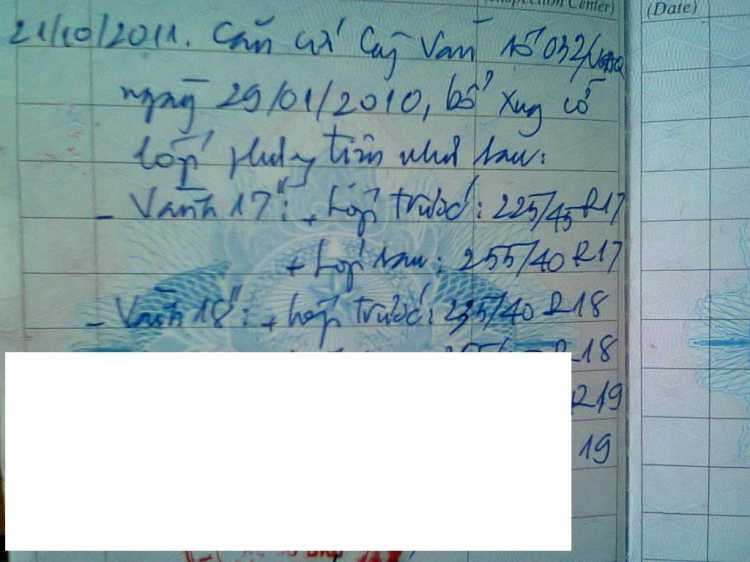 (Inspection Center)
(Date)
21/10/2011. Căn cứ Công Văn số 032/
ngày 29/01/2010, bổ xung cỡ
lốp phương tiện như sau:
- Vành 17": + Lốp trước: 225/45 R17
+ Lốp sau: 255/40 R17
- Vành 18": + Lốp trước: 235/40 R18
R18
R19
19